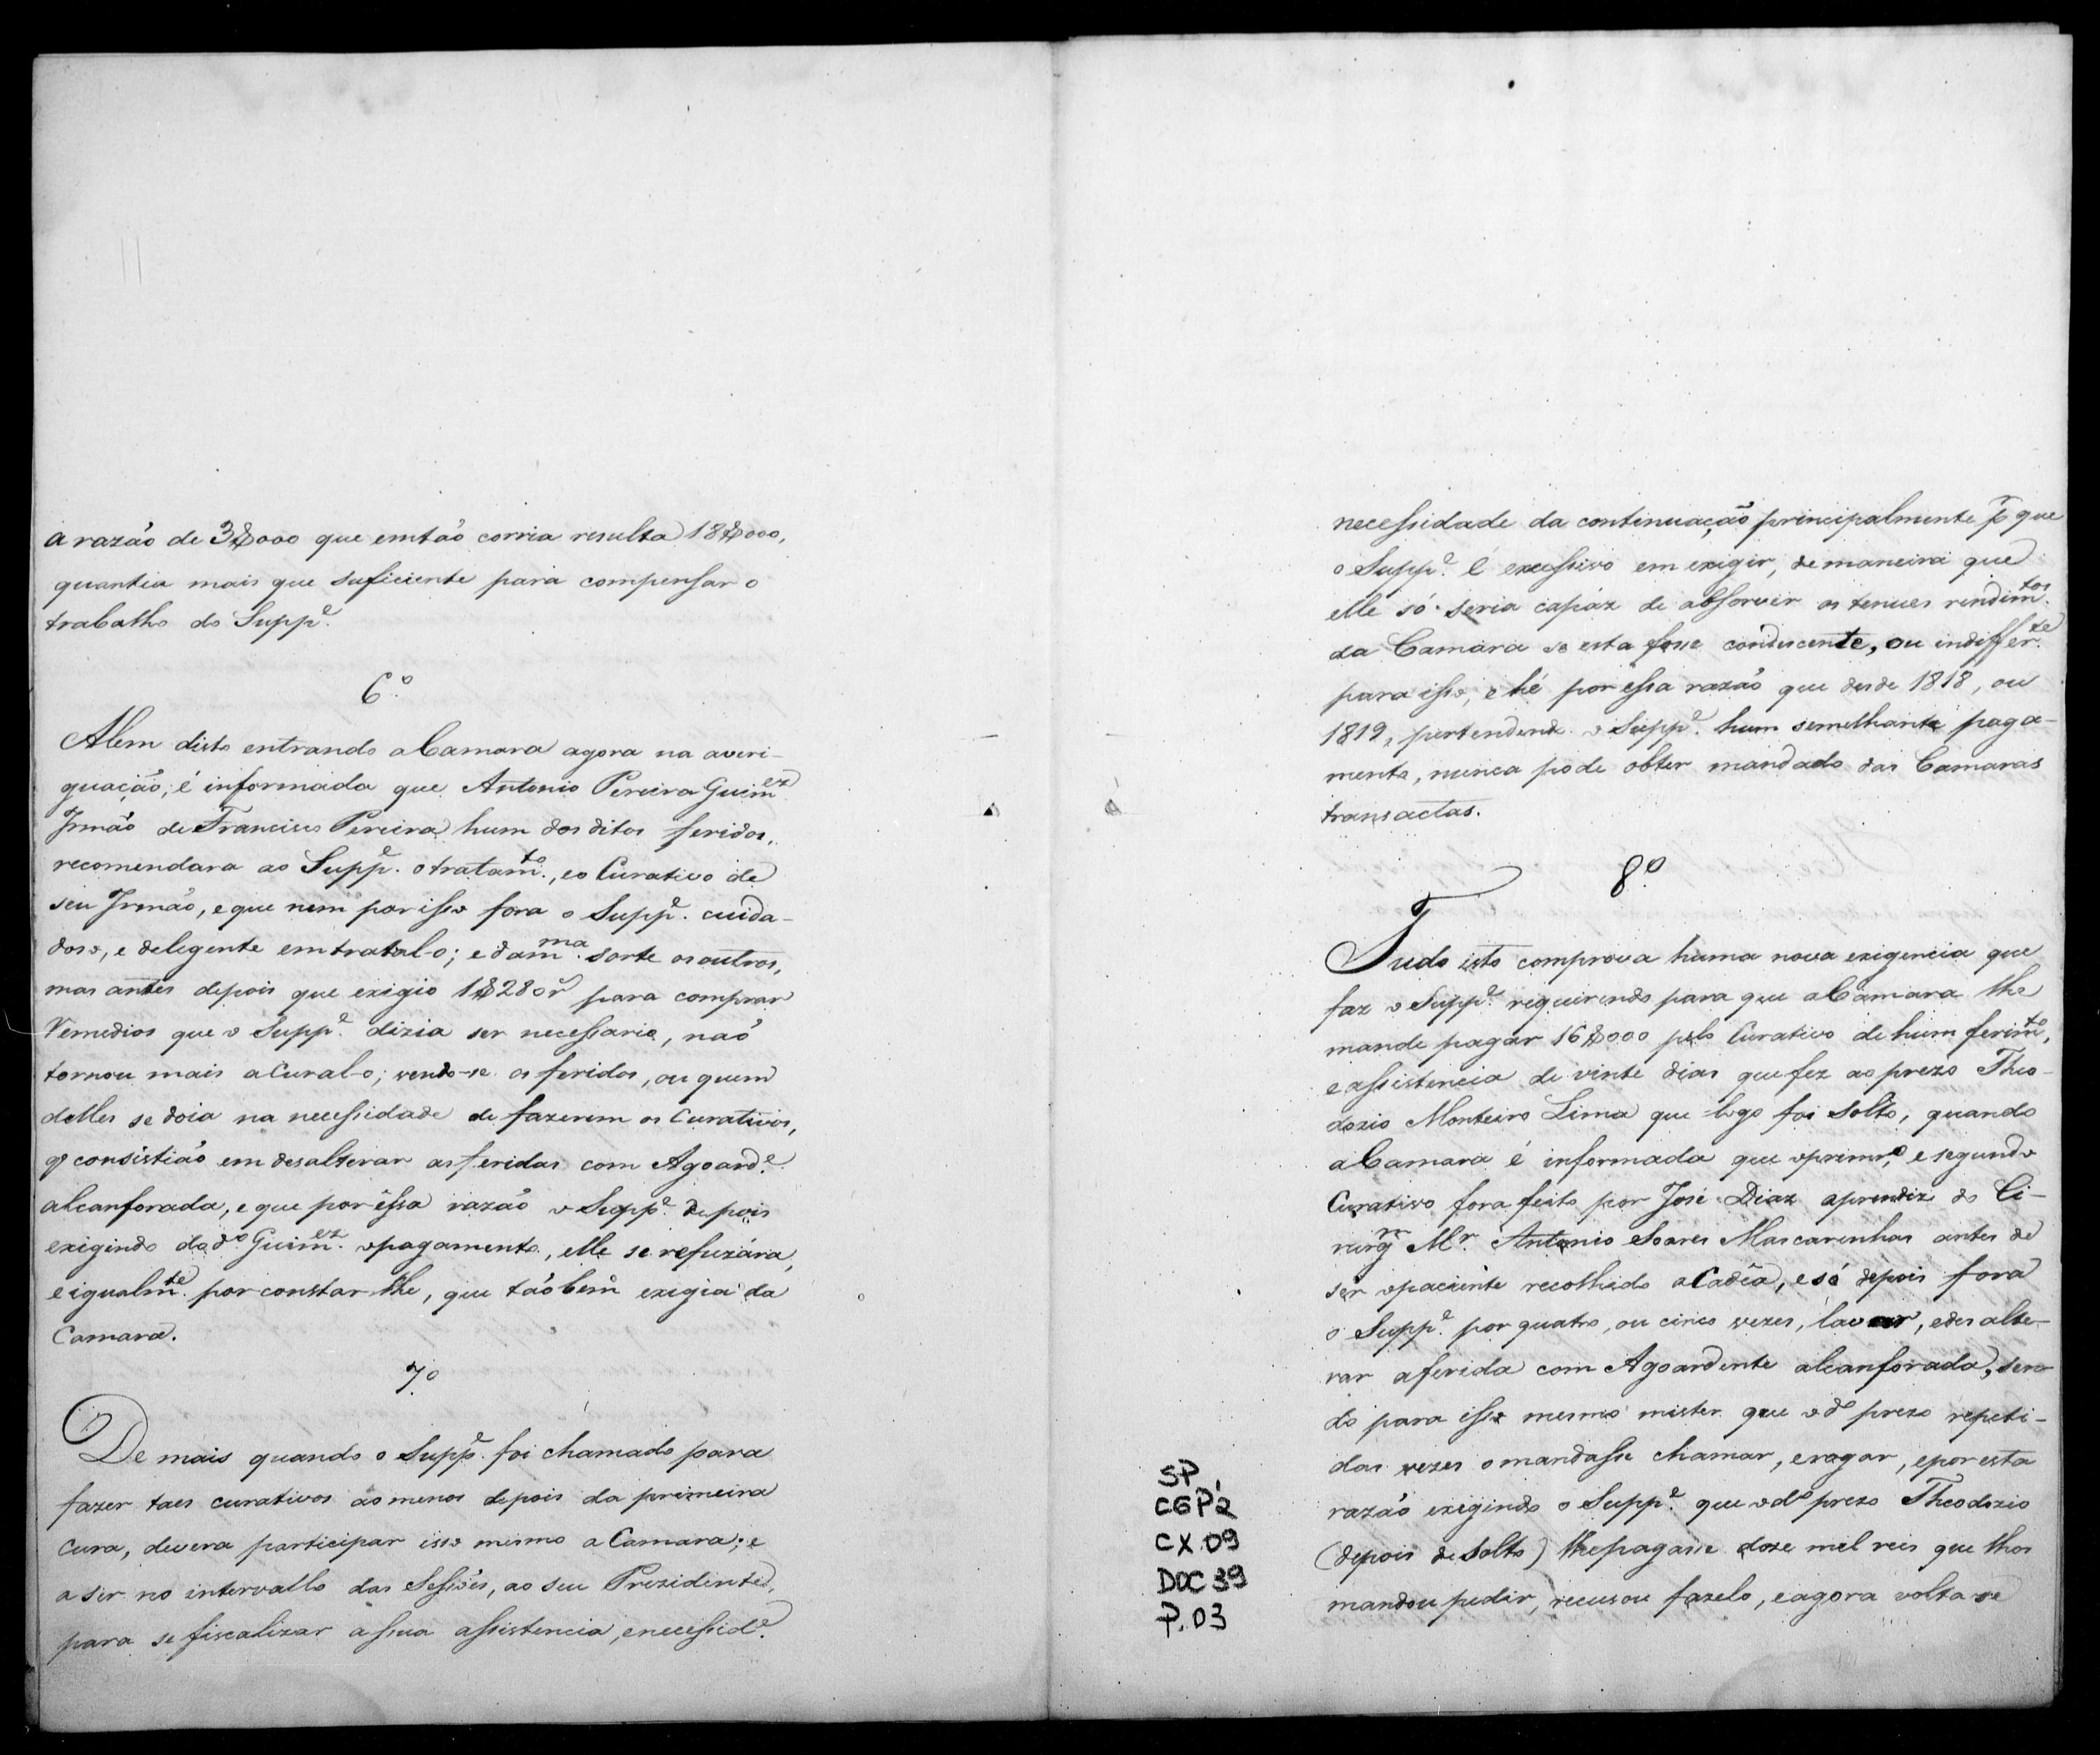 a razão de 3$000 que emtão corria resulta 18$000,
quantia mais que suficiente para compensar o
trabalho do Supp.e
6.o
Alem disto entrando a Camara agora na averi-
guação, é informada que Antonio Pereira Guim.es
Irmão de Francisco Pereira hum dos ditos feridos,
recomendara ao Supp.e o tratam.to, e o Curativo de
seu Irmão, e que nem por isso fora o Supp.e cuida-
doso, e delegente em tratal-o; e da m.ma sorte os outros,
mas antes depois que exigio 1$280 r para comprar
Remedios que o Supp.e dizia ser necessario, naõ
tornou mais a Cural-o; vendo-se os feridos, ou quem
delles se doia na necessidade de fazerem os Curativos,
q consistião em desalterar as feridas com Agoard.e
alcanforada, e que por éssa razão o Supp.e depois
exigindo do d.o Guim.es o pagamento, elle se refuzára,
e igualm.te por constar lhe, que tãobem exigia da
Camara.
7.o
De mais quando o Supp.e foi chamado para
fazer taes curativos ao menos depois da primeira
Cura, devera participar isso mesmo a Camara; e
a ser no intervallo das Sessões, ao seu Prezidente,
para se fiscalizar a ssua assistencia, e necessid.e
necessidade da continuação principalmente p que
o Supp.e é excessivo em exigir, de maneira que
elle só seria capáz de absorver os tenues rendim.tos
da Camara se esta fosse condescente, ou indiffer.te
para isso, e hé por éssa razão que desde 1818, ou
1819, pertendendo o Supp.e hum semelhante paga-
mento, nunca pode obter mandado das Camaras
transactas.
8.o
Tudo isto comprova huma nova exigencia que
faz o Supp.e requirindo para que a Camara lhe
mande pagar 16$000 pelo Curativo de hum ferim.to,
e assistencia de vinte dias que fez ao prezo Theo-
dozio Monteiro Lima que logo foi Solto, quando
a Camara é informada que o prim.ro, e segundo
Curativo fora feito por José Diaz aprendiz do Ci-
rurg.m M.r Antonio Soares Mascarenhas antes de
ser o paciente recolhido a Cadêa, e só depois fora
o Supp.e por quatro, ou cinco vezes, lavar, e desalte-
rar a ferida com Agoardente alcanforada, sen-
do para isso mesmo mister que o d.o prezo repeti-
das vezes o mandasse chamar, e rogar, e por esta
razão exigindo o Supp.e que o d.o prezo Theodozio
(depois de Solto) lhe pagasse doze mil reis que lhos
mandou pedir, recusou fazelo, e agora volta se
SP,
CGP2
CX.09
DOC 39
P.03